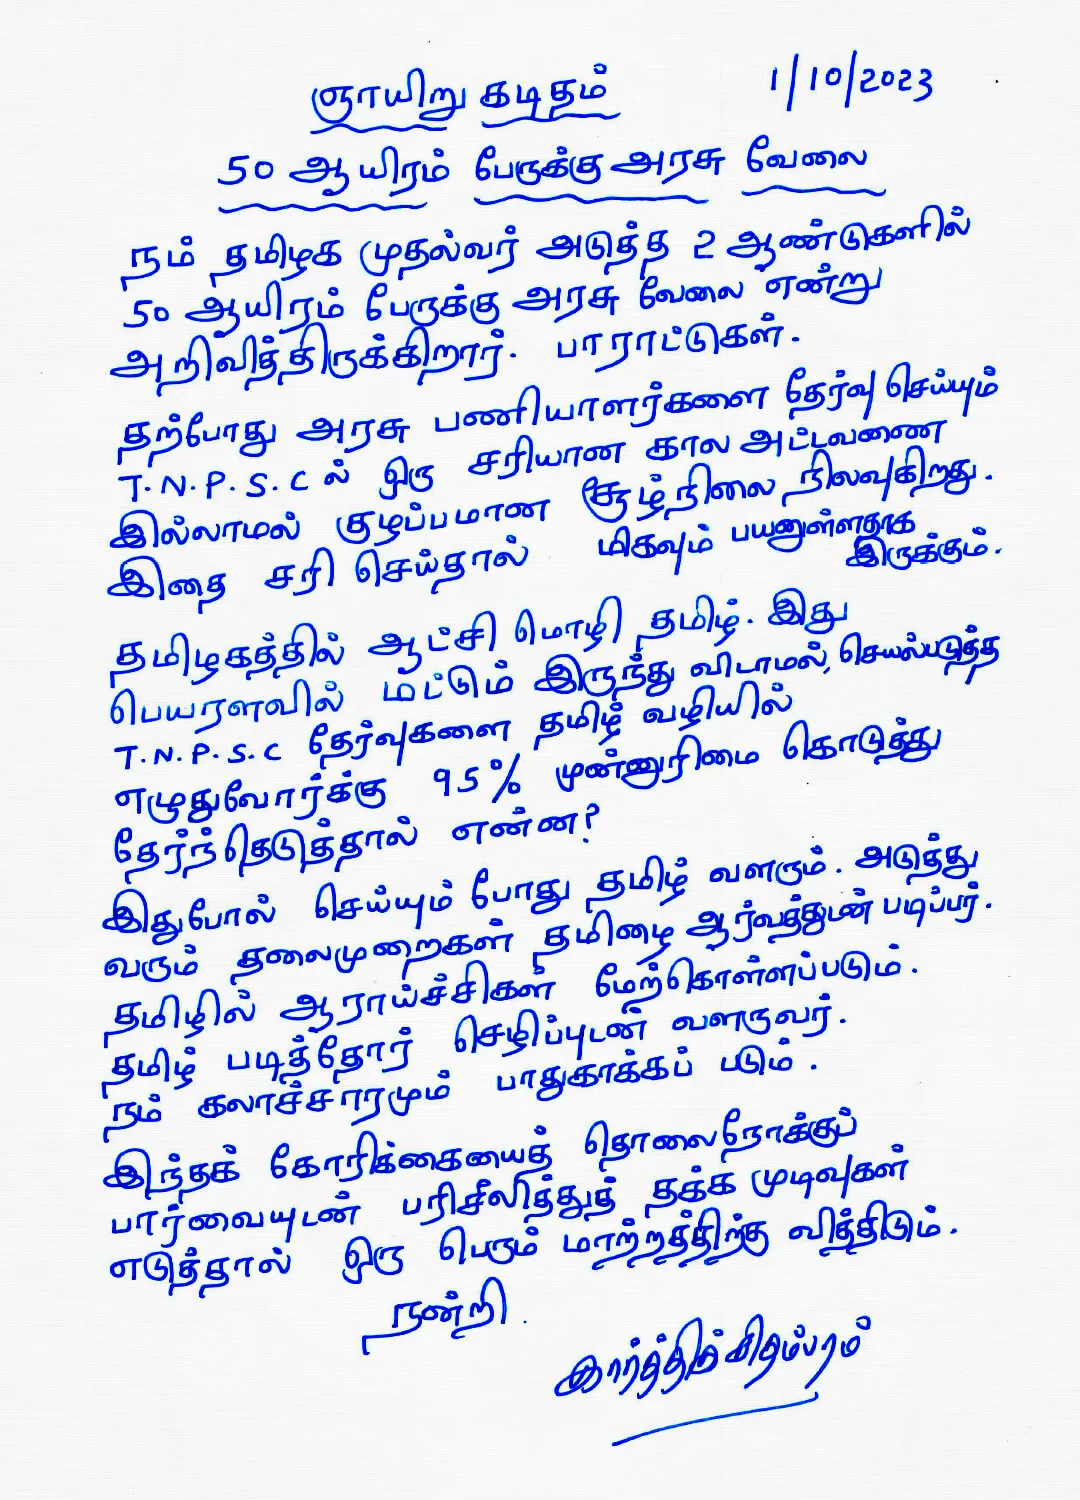 ஞாயிறு கடிதம் 1/10/2023
50 ஆயிரம் பேருக்கு அரசு வேலை
நம் தமிழக முதல்வர் அடுத்த 2 ஆண்டுகளில்
50 ஆயிரம் பேருக்கு அரசு வேலை என்று
அறிவித்திருக்கிறார். பாராட்டுகள்.
தற்போது அரசு பணியாளர்களை தேர்வு செய்யும்
T.N.P.S.C ல் ஒரு சரியான கால அட்டவணை
இல்லாமல் குழப்பமான சூழ்நிலை நிலவுகிறது.
இதை சரி செய்தால் மிகவும் பயனுள்ளதாக
இருக்கும்.
தமிழகத்தில் ஆட்சி மொழி தமிழ். இது
பெயரளவில் மட்டும் இருந்து விடாமல், செயல்படுத்த
T.N.P.S.C தேர்வுகளை தமிழ் வழியில்
எழுதுவோர்க்கு 95% முன்னுரிமை கொடுத்து
தேர்ந்தெடுத்தால் என்ன?
இதுபோல் செய்யும் போது தமிழ் வளரும். அடுத்து
வரும் தலைமுறைகள் தமிழை ஆர்வத்துடன் படிப்பர்.
தமிழில் ஆராய்ச்சிகள் மேற்கொள்ளப்படும்.
தமிழ் படித்தோர் செழிப்புடன் வளருவர்.
நம் கலாச்சாரமும் பாதுகாக்கப் படும்.
இந்தக் கோரிக்கையைத் தொலைநோக்குப்
பார்வையுடன் பரிசீலித்துத் தக்க முடிவுகள்
எடுத்தால் ஒரு பெரும் மாற்றத்திற்கு வித்திடும்.
நன்றி.
கார்த்திக் சிதம்பரம்